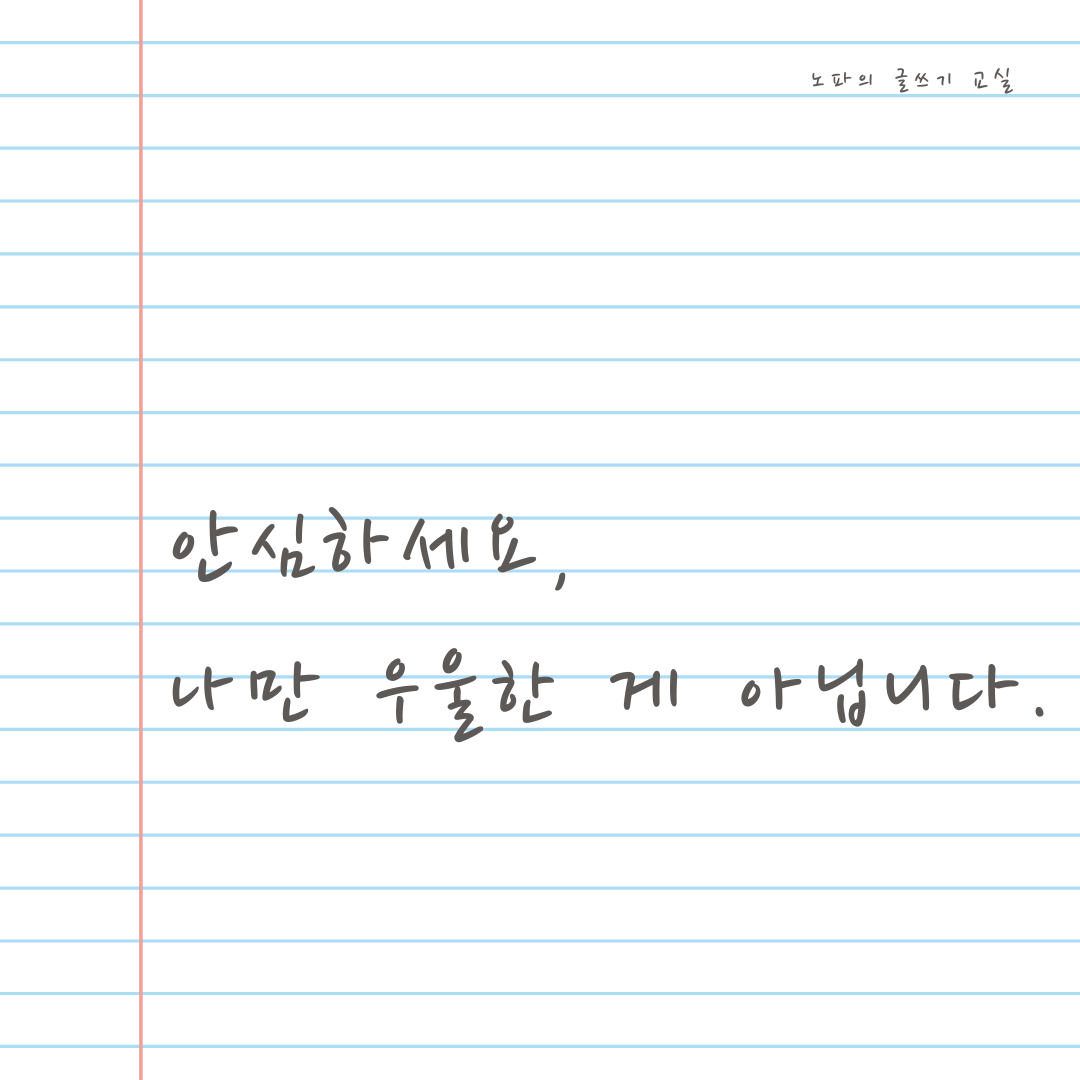 노파의 글쓰기 교실
안심하세요,
나만 우울한 게 아닙니다.